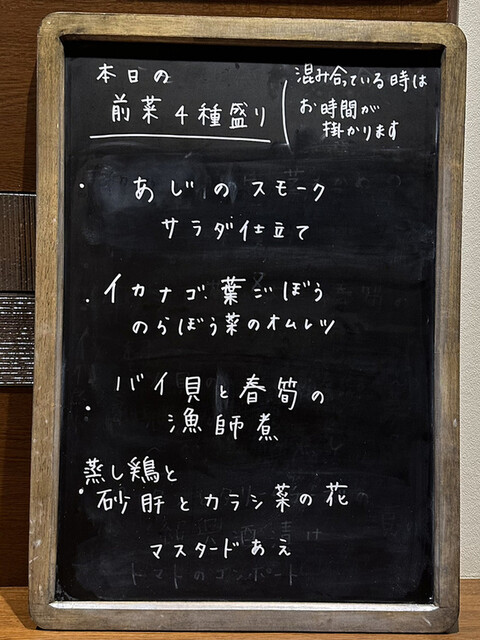 本日の
前菜4種盛り
混み合っている時は
お時間が
掛かります
・あじのスモーク
サラダ仕立て
・イカナゴ、葉ごぼう
のらぼう菜のオムレツ
・バイ貝と春筍の
漁師煮
・蒸し鶏と
砂肝とカラシ菜の花
マスタードあえ
トマトのコンポート